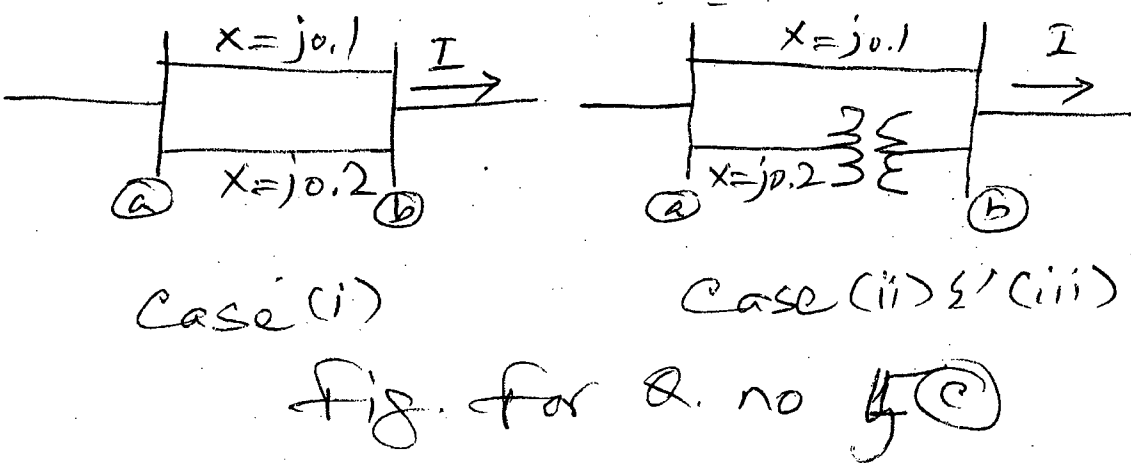 X=j0.1 I
X=j0.2
a b
X=j0.1 I
X=j0.2
a b
Case (i)
Case (ii) & (iii)
Fig. for Q. no C